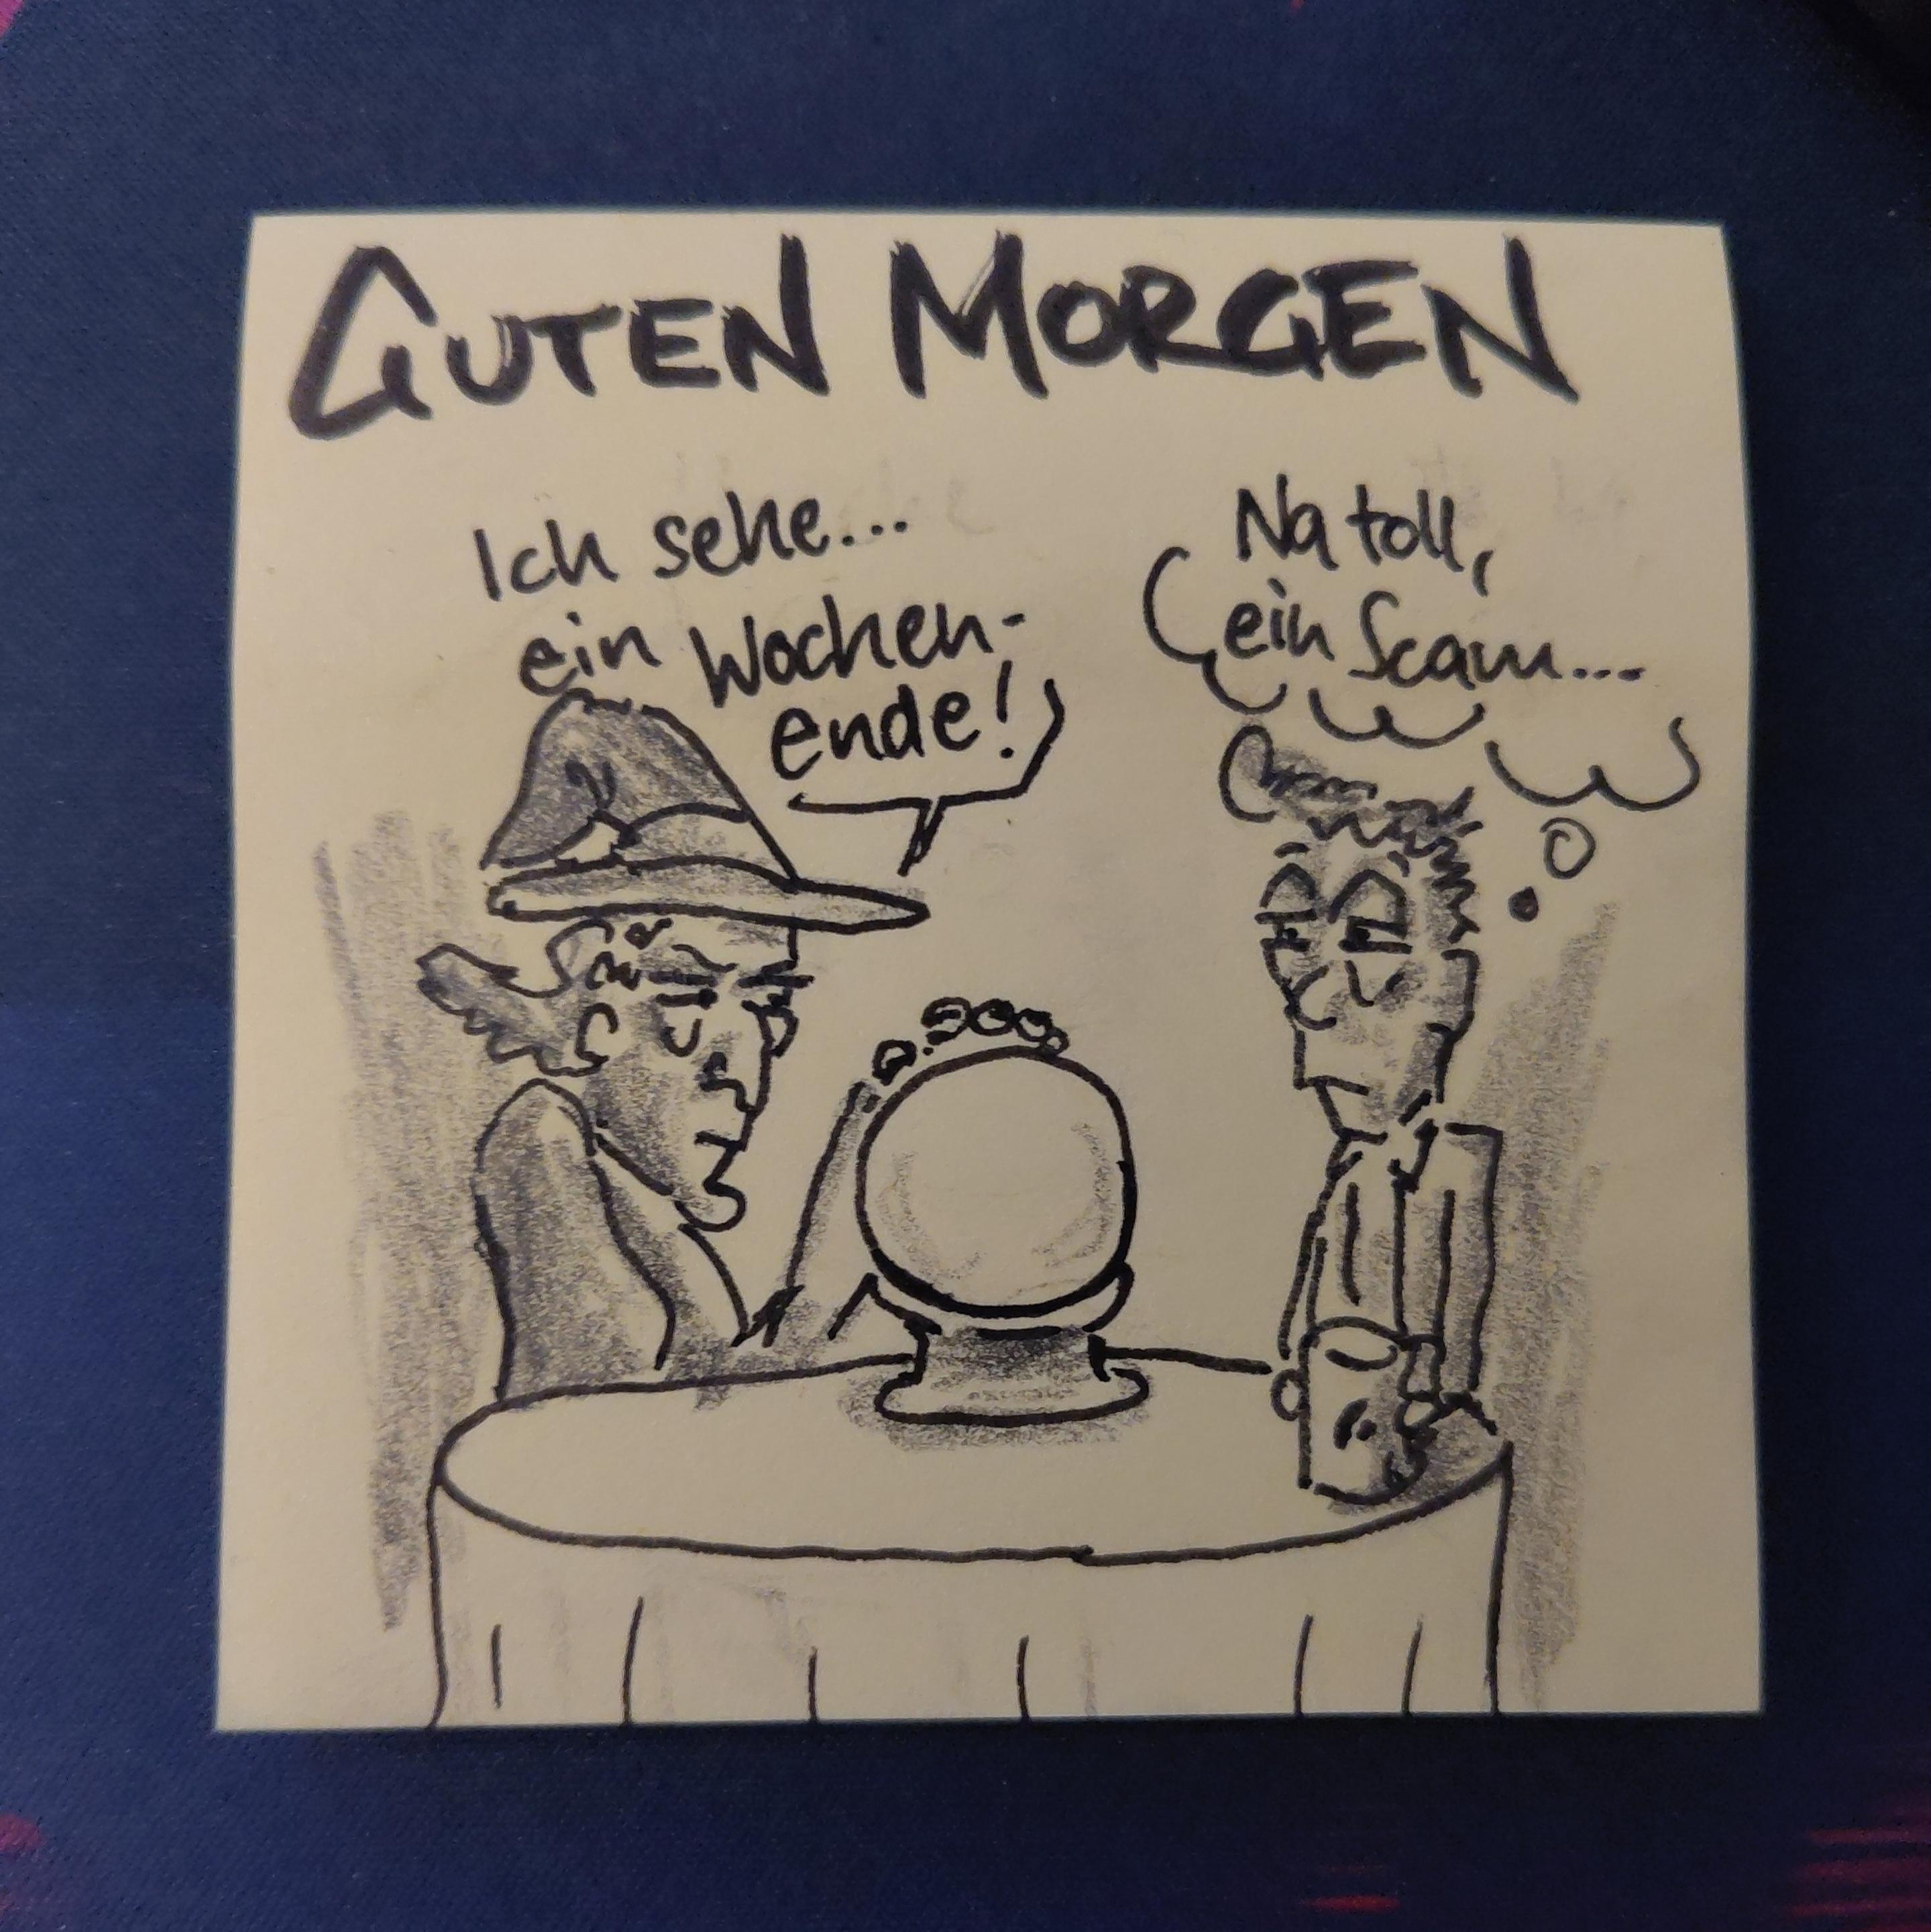 GUTEN MORGEN
Ich sehe...
ein Wochen-
ende!
Na toll,
ein Scam...